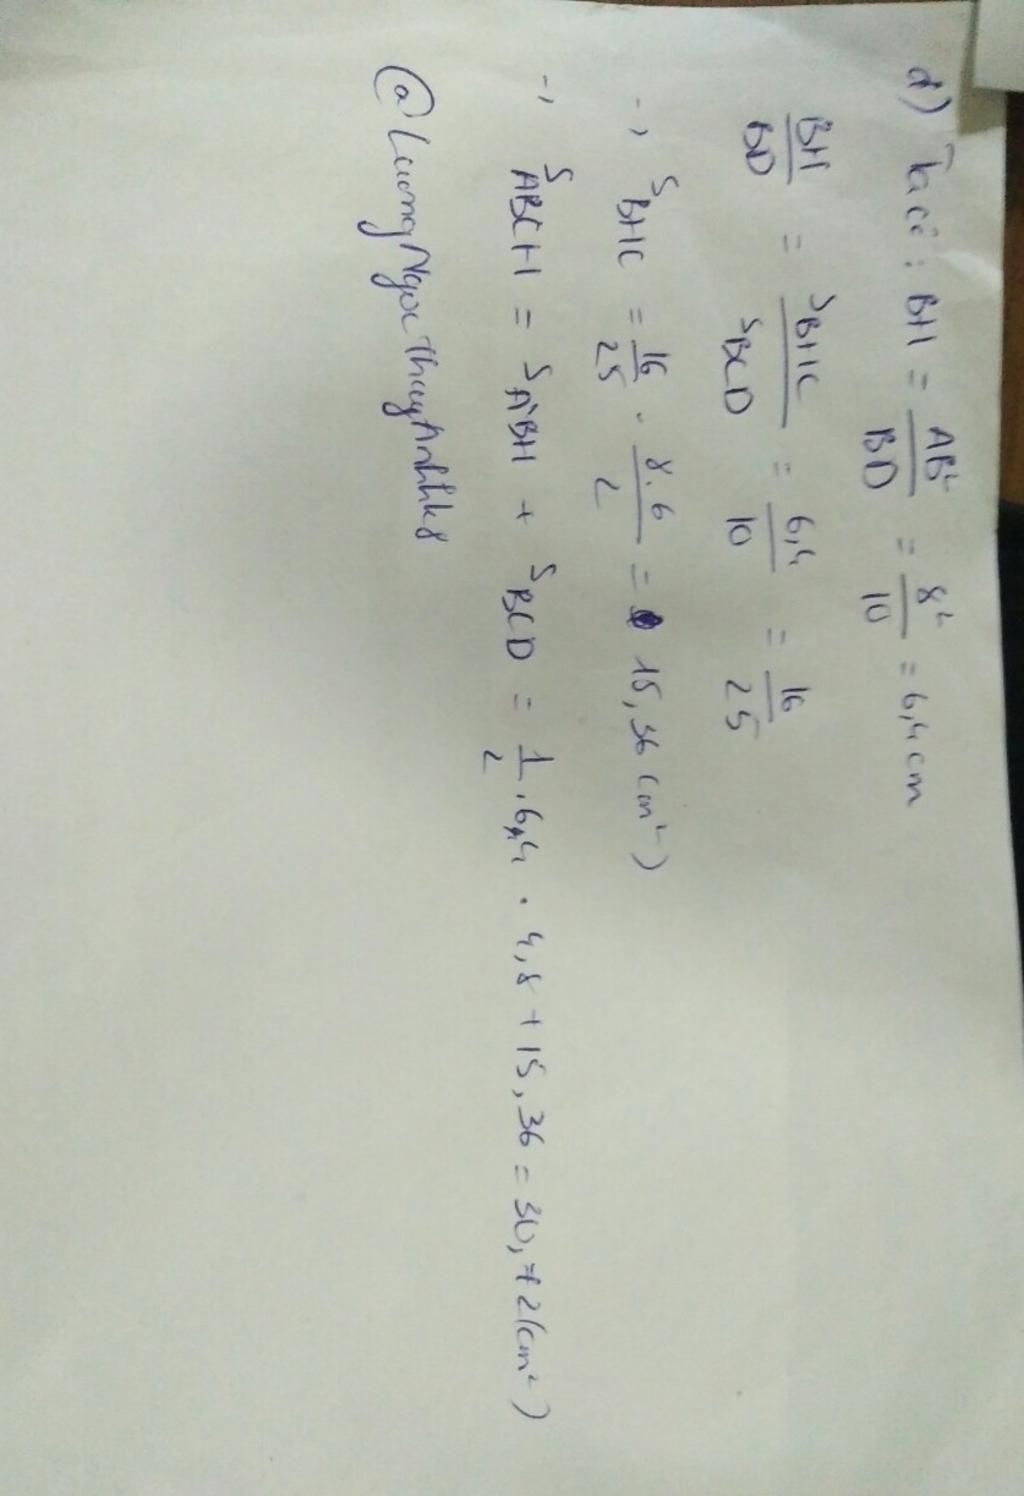 d) Ta có : BH = AB²/BD = 8²/10 = 6,4 cm
BH/BD = S BHC/S BCD = 6,4/10 = 16/25
-, S BHC = 16/25 . 8.6/2 = 15,36 (cm²)
-, S ABCH = S ABH + S BCD = 1/2 . 6,4 . 4,8 + 15,36 = 30,72 (cm²)
@ LuongNgocThuyAnhhk8